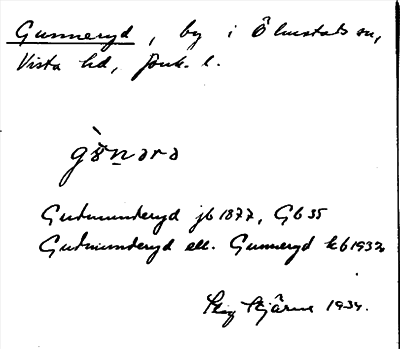 Gunneryd, by i Ölmstads sn,
Vista hd, Jnk. l.
gö̀nərə
Gudmunderyd jb 1877, Gb 35
Gudmunderyd ell. Gunneryd kb 1932
Stig Stjärne 1934.